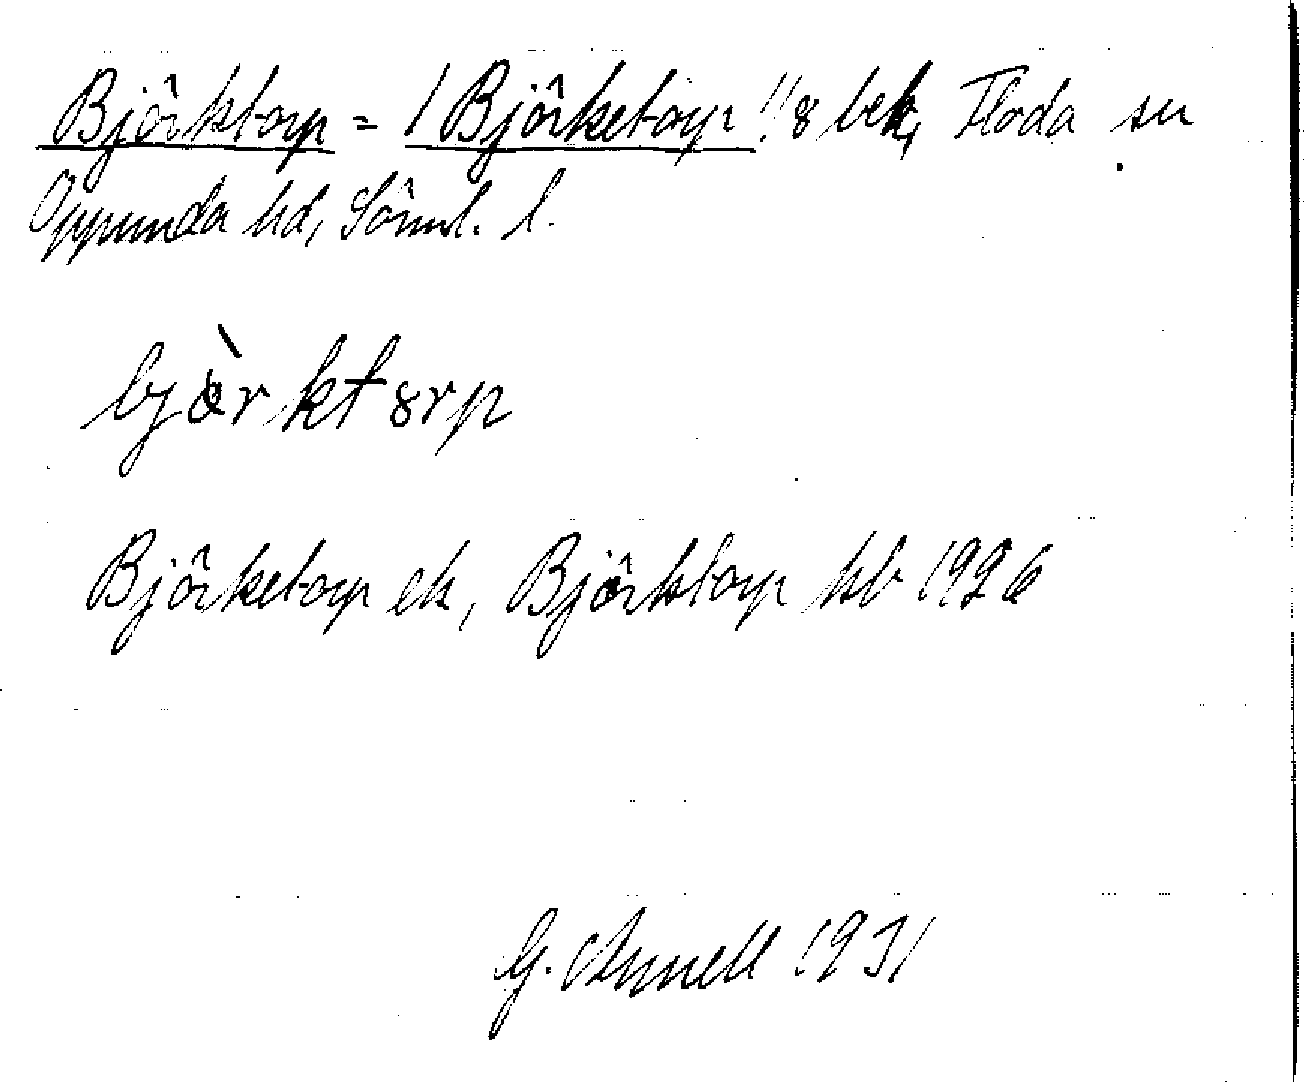 Björktorp = /Björketorp 1/8 bek, Floda sn
Oppunda hd, Sörml. l.
bjòrktorp
Björketorp ek, Björktorp kb 1926
G. Annell 1931